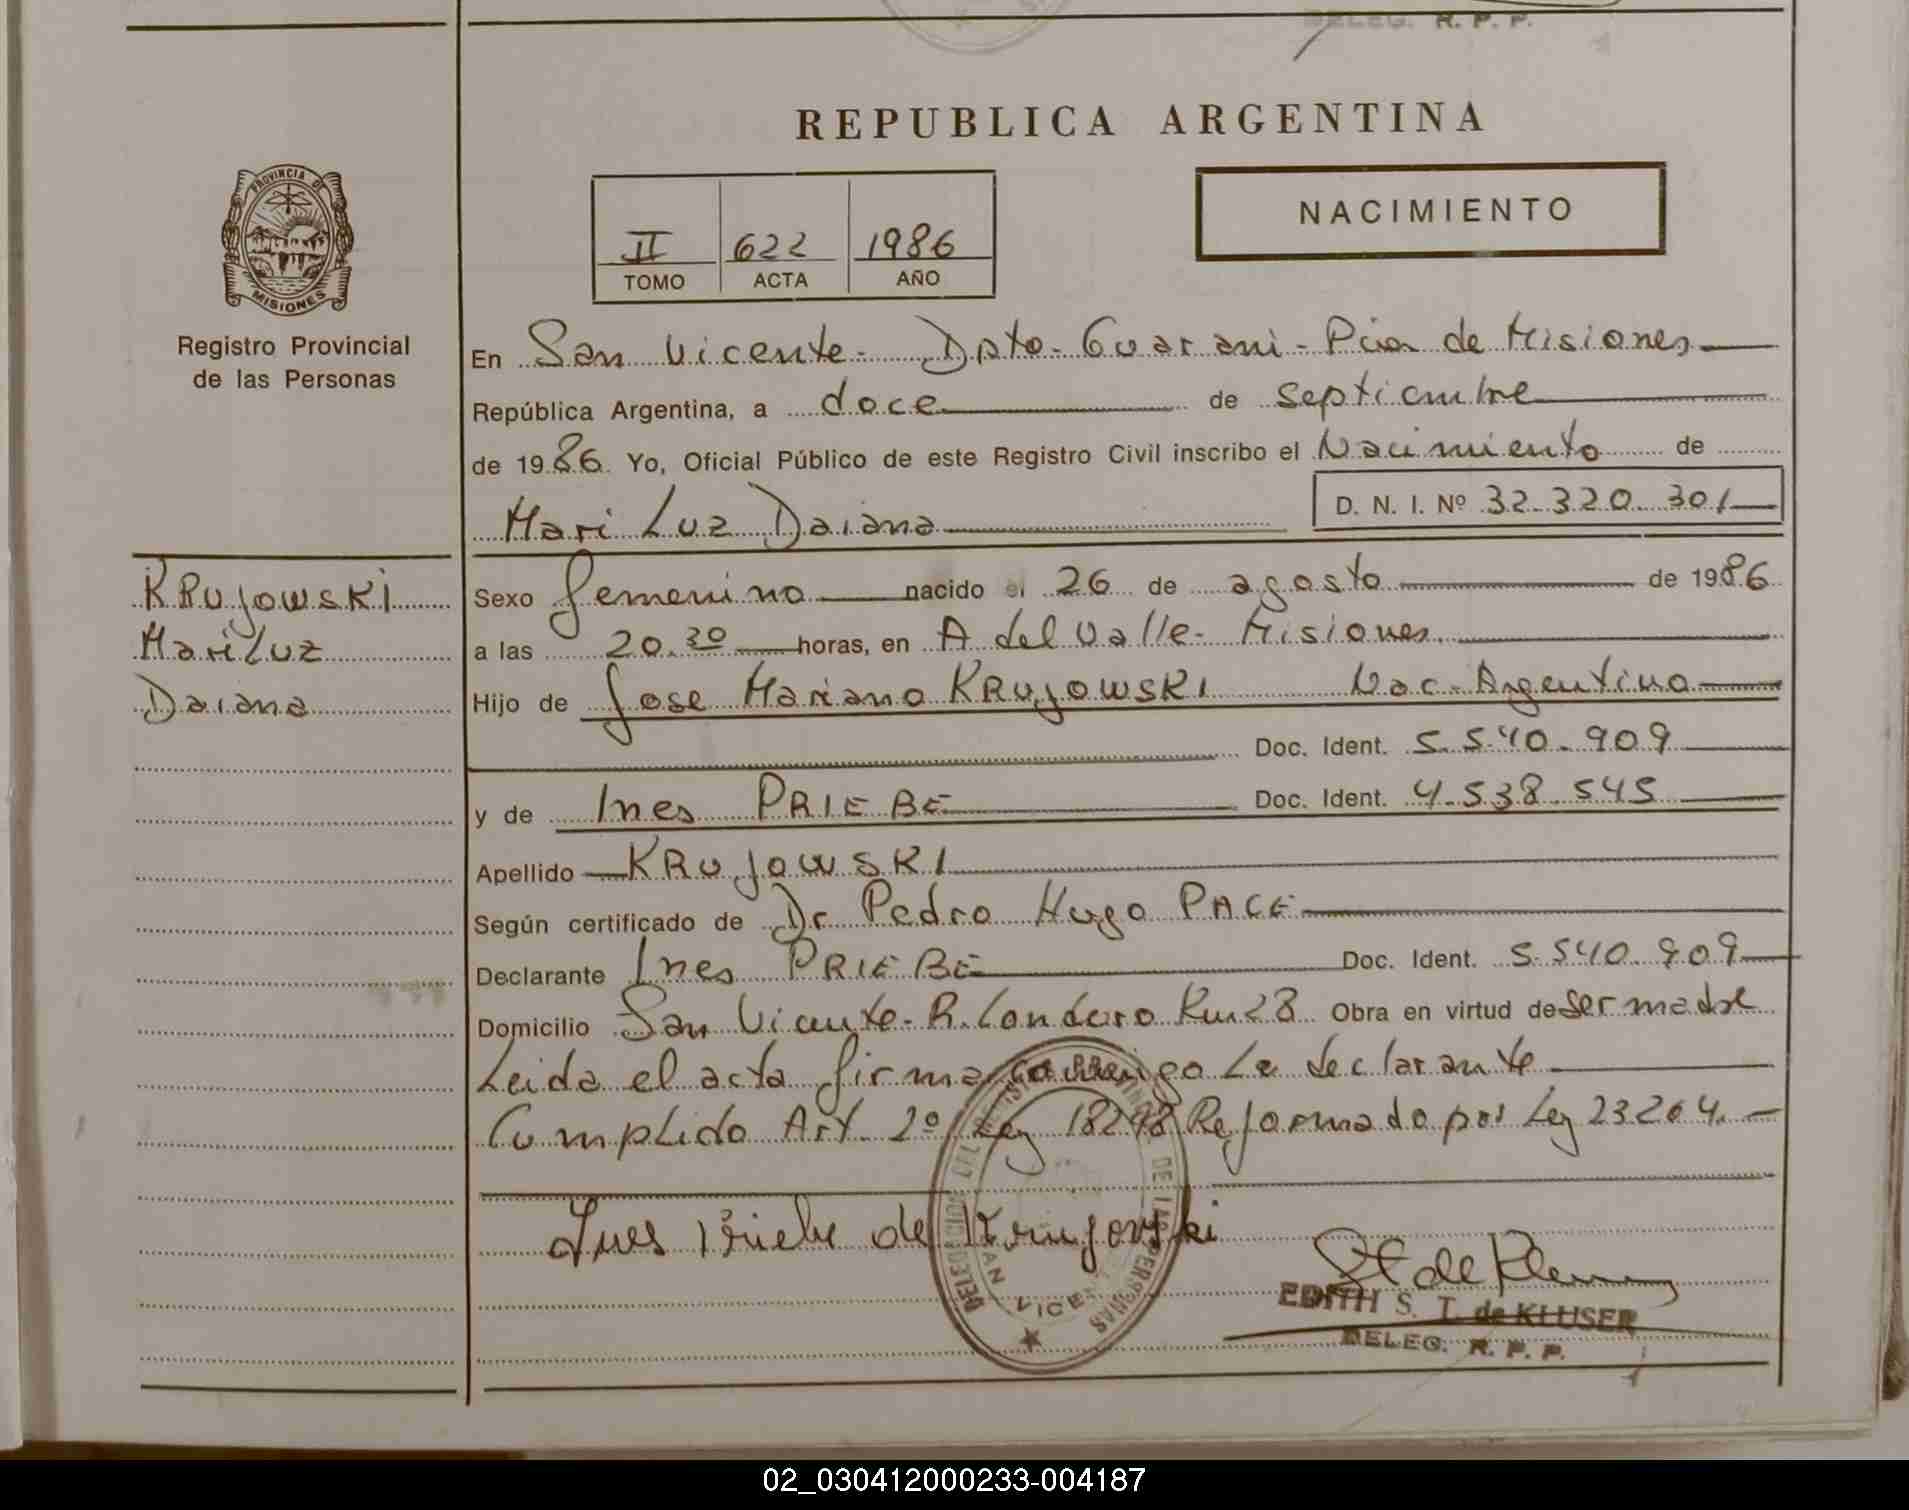 DELEG. R. P. P.
REPUBLICA ARGENTINA
PROVINCIA DE
MISIONES
Registro Provincial
de las Personas
II 622 1986
TOMO ACTA AÑO
NACIMIENTO
En San Vicente - Dpto - Guarani - Pcia de Misiones
República Argentina, a doce de septiembre
de 1986 Yo, Oficial Público de este Registro Civil inscribo el Nacimiento de
Mari Luz Daiana D. N. I. Nº 32.320.301
KRUJOWSKI
Mari Luz
Daiana
Sexo femenino nacido el 26 de agosto de 1986
a las 20.30 horas, en A del Valle - Misiones
Hijo de Jose Mariano KRUJOWSKI Nac - Argentina
Doc. Ident. 5.540.909
y de Ines PRIEBE Doc. Ident. 4.538.545
Apellido KRUJOWSKI
Según certificado de Dr Pedro Hugo PACE
Declarante Ines PRIEBE Doc. Ident. 5.540.909
Domicilio San Vicente - R. Londero Km 28 Obra en virtud de ser madre
Leida el acta firma conmigo La declarante
Cumplido Art. 2º Ley 18248 Reformado por Ley 23264. -
Ines Priebe de Krujovski
DELEGACION DEL REGISTRO PROVINCIAL DE LAS PERSONAS
SAN VICENTE
EDITH S. T. de KLUSER
DELEG. R. P. P.
02_030412000233-004187